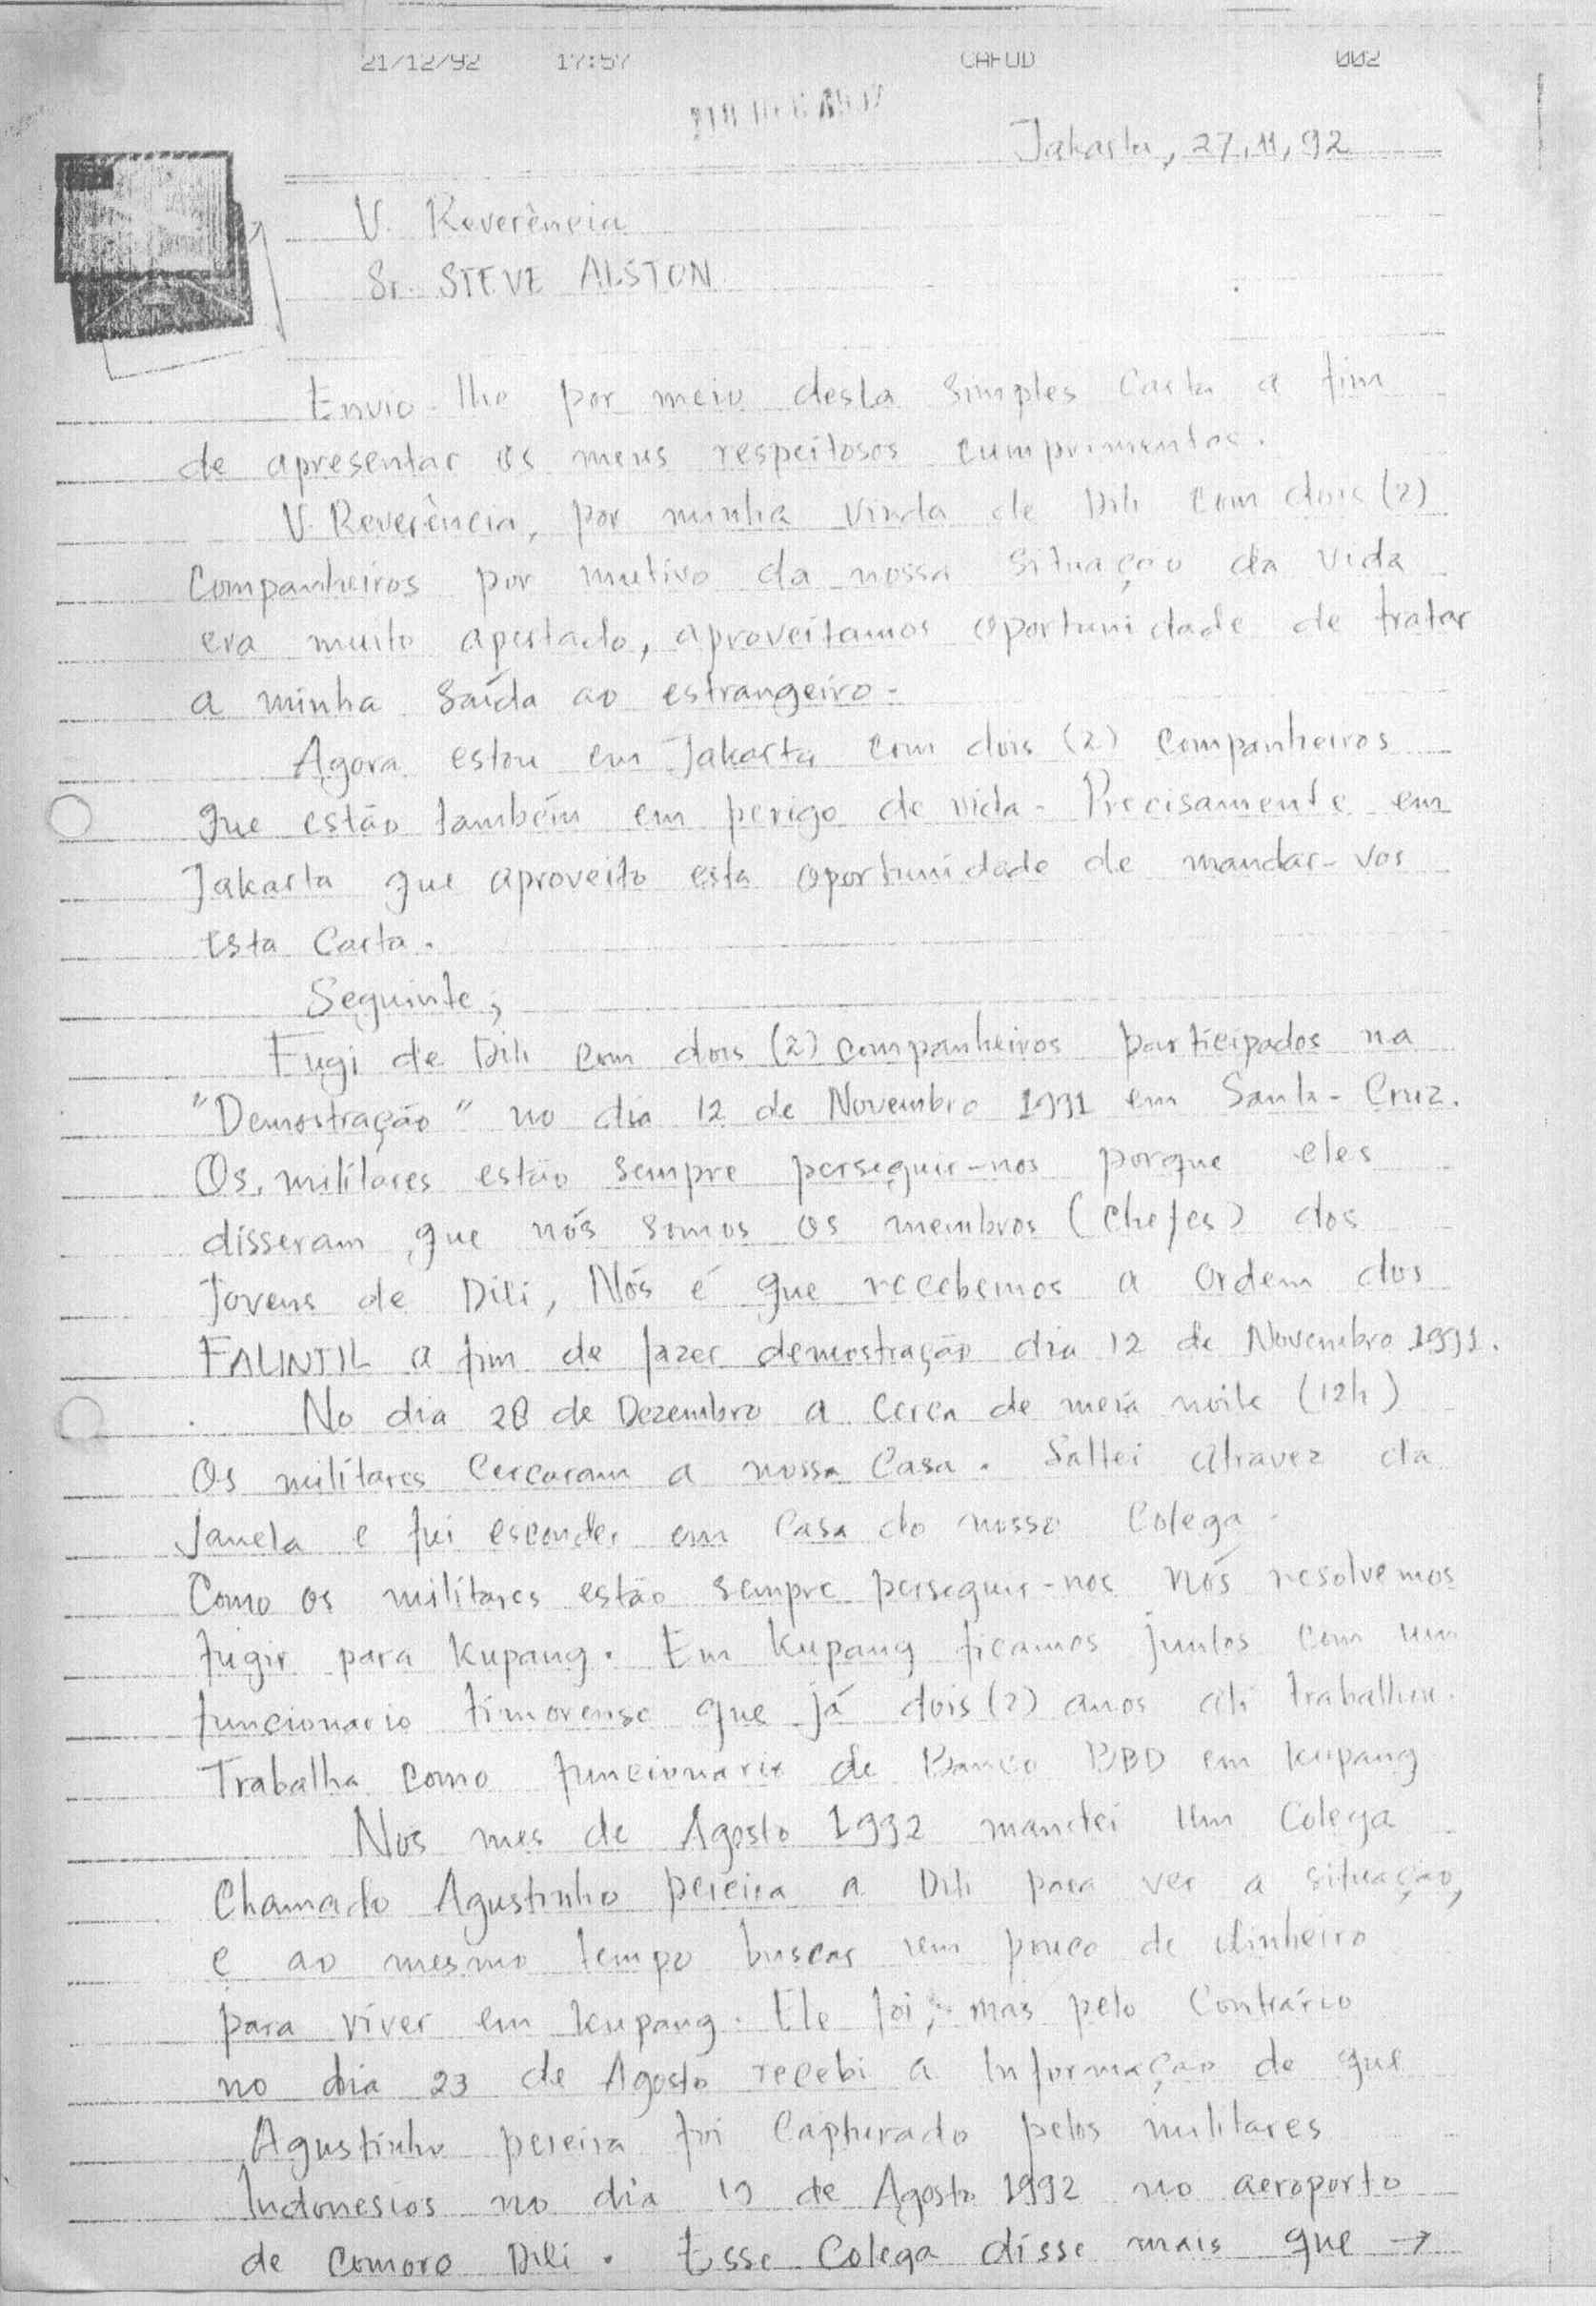 21/12/92 17:57 CAFOD 002
Jakarta, 27.11.92
V. Reverência
Sr. STEVE ALSTON
Envio-lhe por meio desta simples Carta a fim
de apresentar os meus respeitosos cumprimentos.
V. Reverência, por minha vinda de Dili com dois (2)
Companheiros por mutivo da nossa situação da vida
era muito apertado, aproveitamos oportunidade de tratar
a minha saída ao estrangeiro.
Agora estou em Jakarta com dois (2) Companheiros
que estão também em perigo de vida. Precisamente em
Jakarta que aproveito esta oportunidade de mandar-vos
esta Carta.
Seguinte;
Fugi de Dili com dois (2) companheiros participados na
"Demostração" no dia 12 de Novembro 1991 em Santa-Cruz.
Os militares estão sempre perseguir-nos porque eles
disseram que nós somos os membros (chefes) dos
Jovens de Dili, Nós é que recebemos a ordem dos
FALINTIL a fim de fazer demostração dia 12 de Novembro 1991.
No dia 28 de Dezembro a cerca de meia noite (12h)
Os militares cercaram a nossa Casa. Saltei atravez da
Janela e fui esconder em Casa do nosso Colega.
Como os militares estão sempre perseguir-nos nós resolvemos
fugir para Kupang. Em Kupang ficamos juntos com um
funcionario timorense que já dois (2) anos ali trabalhou.
Trabalha como funcionario de Banco BBD em Kupang
Nos mes de Agosto 1992 mandei um Colega
Chamado Agustinho pereira a Dili para ver a situação,
e ao mesmo tempo buscar um pouco de dinheiro
para viver em Kupang. Ele foi, mas pelo Contrário
no dia 23 de Agosto recebi a informação de que
Agustinho pereira foi Capturado pelos militares
Indonesios no dia de Agosto 1992 no aeroporto
de comoro Dili. Esse Colega disse mais que →